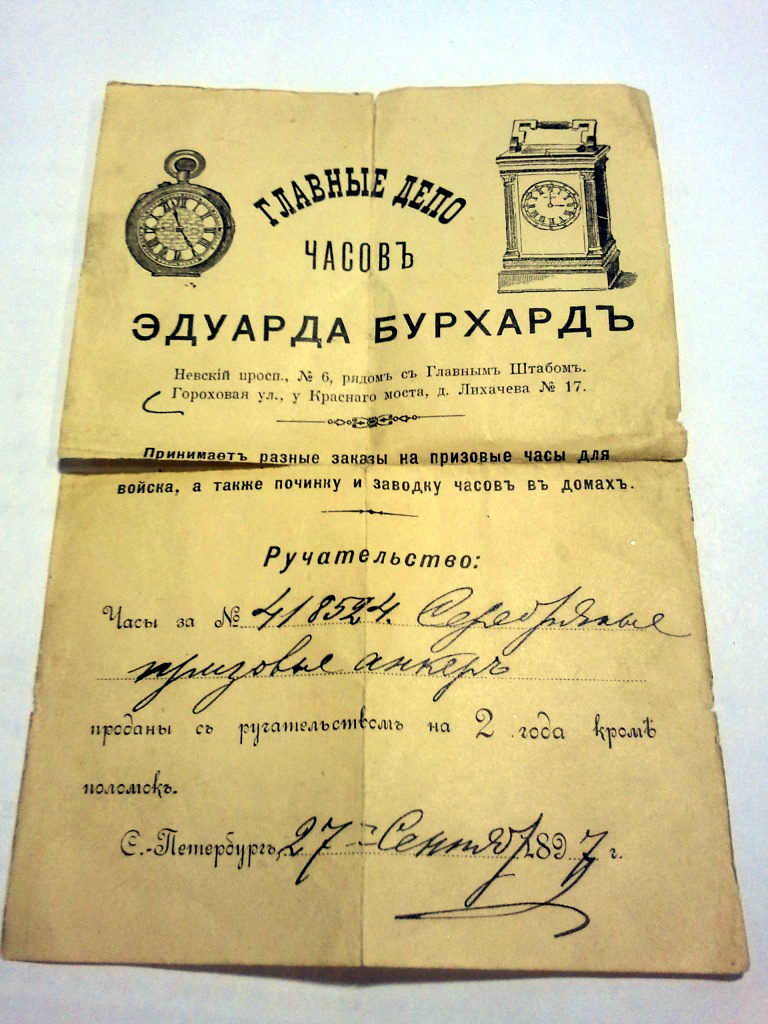 ГЛАВНЫЕ ДЕПО
ЧАСОВЪ
ЭДУАРДА БУРХАРДЪ
Невскій просп., № 6, рядомъ съ Главнымъ Штабомъ.
Гороховая ул., у Краснаго моста, д. Лихачева № 17.
Принимаетъ разные заказы на призовые часы для
войска, а также починку и заводку часовъ въ домахъ.
Ручательство:
Часы за № 418524. Серебряные
призовые анкеръ
проданы съ ручательствомъ на 2 года кромѣ
поломокъ.
С.-Петербургъ, 27 Сентяб 1897 г.